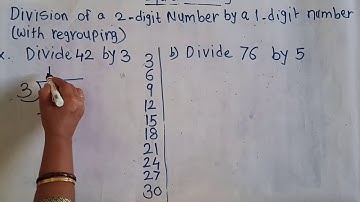 Division of a 2-digit Number by a 1-digit number
(with regrouping)
Divide 42 by 3
b) Divide 76 by 5
1
3
3
6
9
12
15
18
21
24
27
30